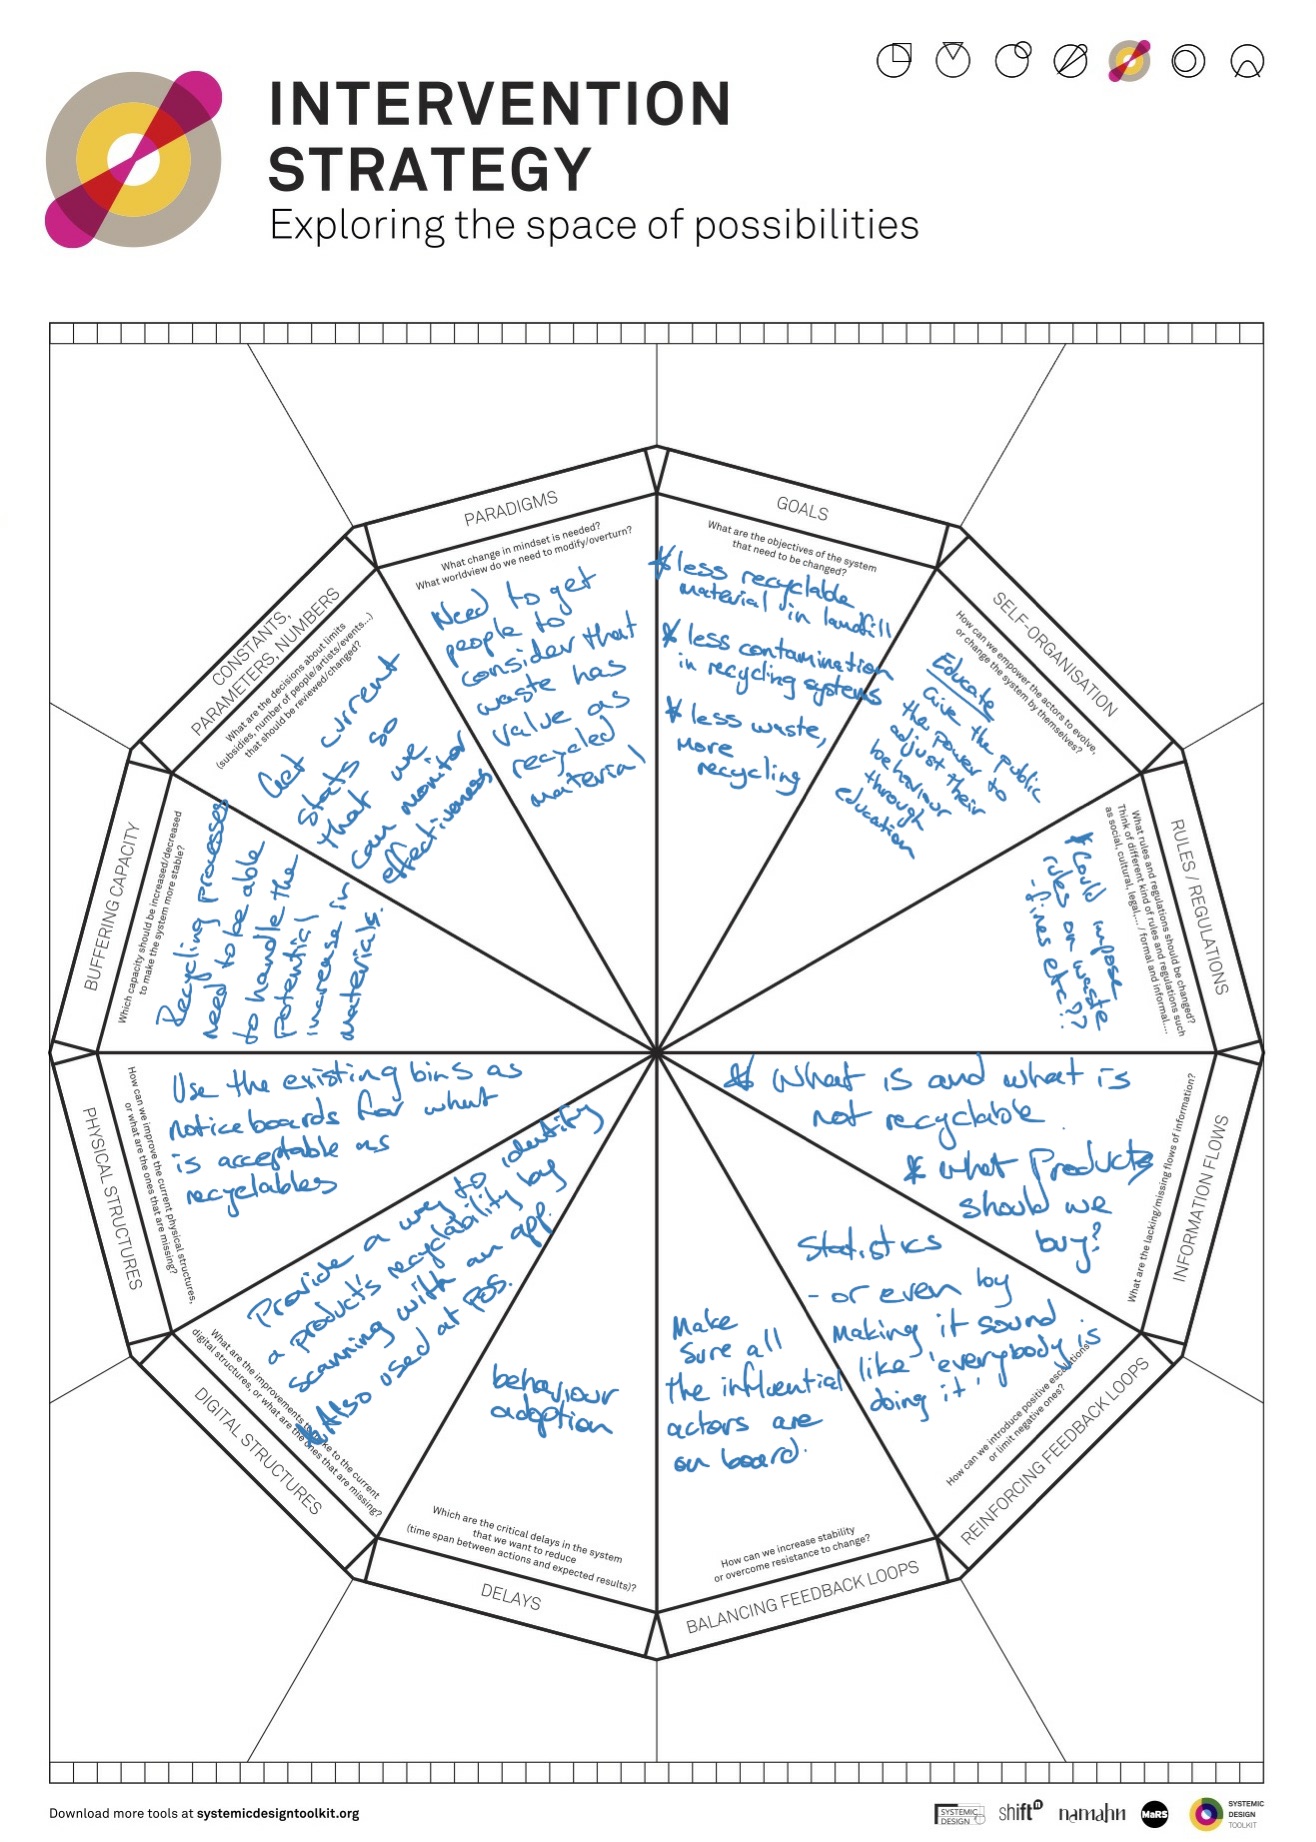 INTERVENTION
STRATEGY
Exploring the space of possibilities
PARADIGMS
What change in mindset is needed?
What worldview do we need to modify/overturn?
Need to get
people to
consider that
waste has
value as
recycled
material
GOALS
What are the objectives of the system
that need to be changed?
* less recyclable
material in landfill
* less contamination
in recycling systems
* less waste,
more
recycling
SELF-ORGANISATION
How can we empower the actors to evolve,
or change the system by themselves?
Educate
Give the public
the power to
adjust their
behaviour
through
education
RULES / REGULATIONS
What rules and regulations should be changed?
Think of different kind of rules and regulations such
as social, cultural, legal,... / formal and informal....
* Could impose
rules on waste
- fines etc??
INFORMATION FLOWS
What are the lacking/missing flows of information?
* What is and what is
not recyclable.
* what products
should we
buy?
REINFORCING FEEDBACK LOOPS
How can we introduce positive escalations
or limit negative ones?
Statistics
- or even by
making it sound
like 'everybody is
doing it'
BALANCING FEEDBACK LOOPS
How can we increase stability
or overcome resistance to change?
Make
sure all
the influential
actors are
on board.
DELAYS
Which are the critical delays in the system
that we want to reduce
(time span between actions and expected results)?
behaviour
adoption
DIGITAL STRUCTURES
What are the improvements to make to the current
digital structures, or what are the ones that are missing?
Provide a way to identify
a product's recyclability by
scanning with an app.
* Also used at POS.
PHYSICAL STRUCTURES
How can we improve the current physical structures,
or what are the ones that are missing?
Use the existing bins as
noticeboards for what
is acceptable as
recyclables
BUFFERING CAPACITY
Which capacity should be increased/decreased
to make the system more stable?
Recycling processes
need to be able
to handle the
potential
increase in
materials.
CONSTANTS,
PARAMETERS, NUMBERS
What are the decisions about limits
(subsidies, number of people/artists/events...)
that should be reviewed/changed?
Get current
stats so
that we
can monitor
effectiveness
Download more tools at systemicdesigntoolkit.org
SYSTEMIC
DESIGN
shiftN
namahn
MaRS
SYSTEMIC
DESIGN
TOOLKIT